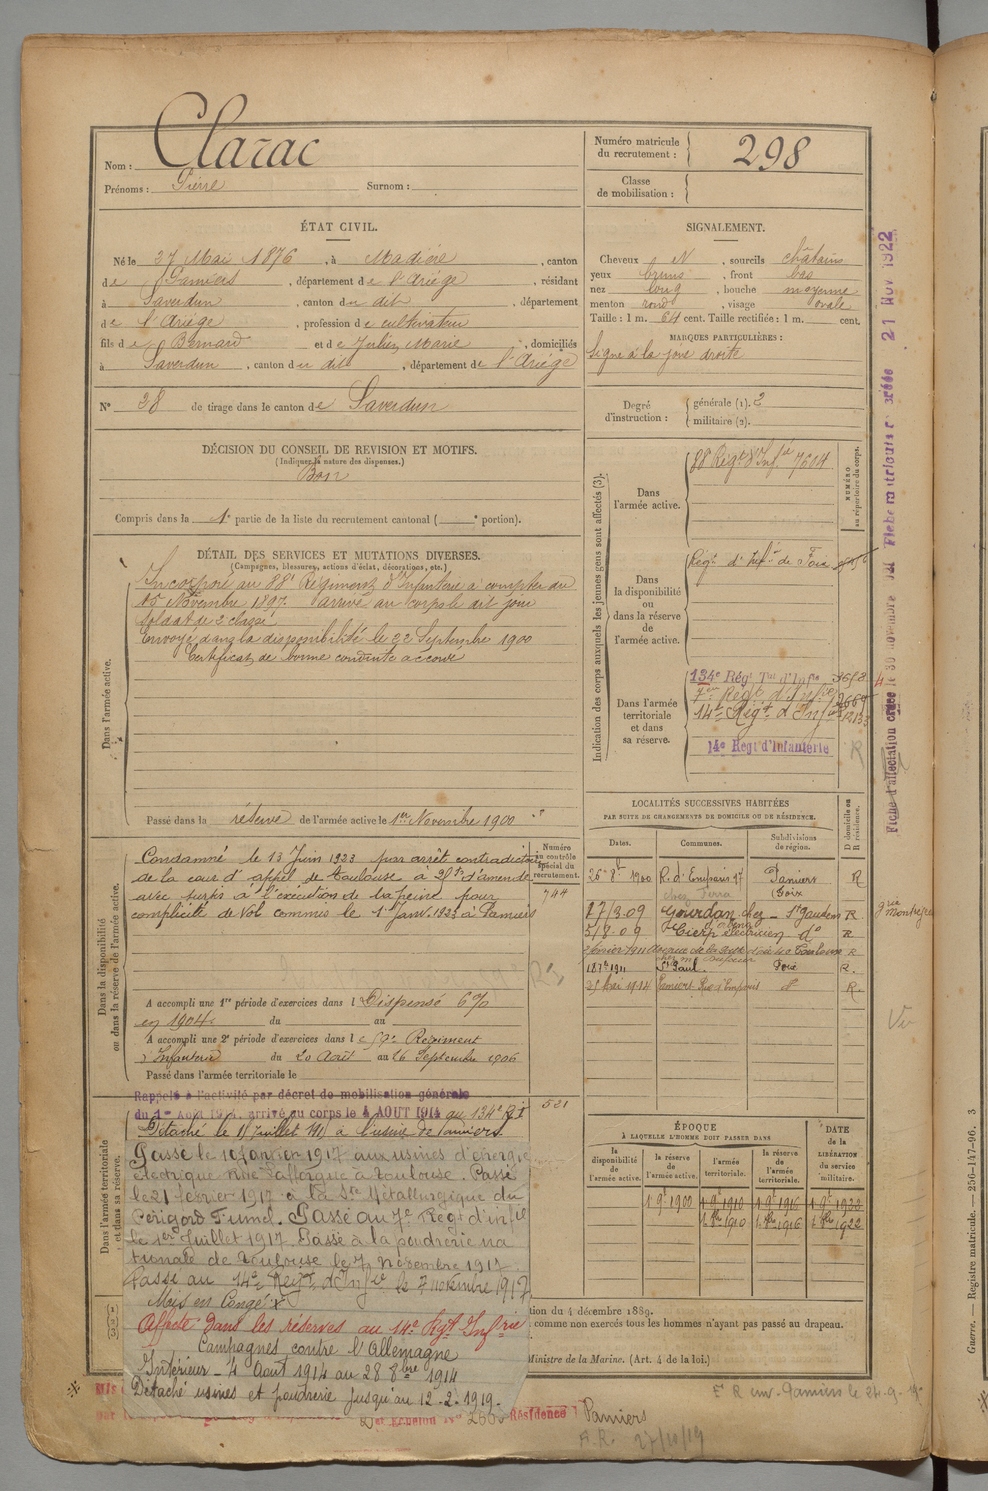 Nom : Clarac
Prénoms : Pierre Surnom :
Numéro matricule du recrutement : 298
Classe de mobilisation :
ÉTAT CIVIL.
Né le 27 Mai 1876, à Madière, canton
de Pamiers, département de l'Ariège, résidant
à Saverdun, canton du dit, département
de l'Ariège, profession de cultivateur
fils de Bernard et de Julien, Marie, domiciliés
à Saverdun, canton du dit, département de l'Ariège
N° 28 de tirage dans le canton de Saverdun
SIGNALEMENT.
Cheveux N, sourcils châtains
yeux bruns, front bas
nez long, bouche moyenne
menton rond, visage ovale
Taille : 1 m. 64 cent. Taille rectifiée : 1 m. cent.
MARQUES PARTICULIÈRES :
Signe à la joue droite
Degré d'instruction : générale (1). 2
militaire (2).
DÉCISION DU CONSEIL DE REVISION ET MOTIFS.
(Indiquer la nature des dispenses.)
Bon
Compris dans la 1e partie de la liste du recrutement cantonal ( e portion).
DÉTAIL DES SERVICES ET MUTATIONS DIVERSES.
(Campagnes, blessures, actions d'éclat, décorations, etc.)
Dans l'armée active.
Incorporé au 88e Régiment d'Infanterie à compter du
15 Novembre 1897. arrivé au corps le dit jour
soldat de 2e classe
Envoyé dans la disponibilité le 22 Septembre 1900
Certificat de bonne conduite accordé
Passé dans la réserve de l'armée active le 1er Novembre 1900
Indication des corps auxquels les jeunes gens sont affectés (3).
NUMÉRO au répertoire du corps.
Dans l'armée active.
88 Régt d'Infie 7604
Dans la disponibilité ou dans la réserve de l'armée active.
Régt d'Infie de Foix
Dans l'armée territoriale et dans sa réserve.
134e Rég Tal d'Infie
7e Régt d'Infie
14e Régt d'Infie
14e Régt d'Infanterie
R
Fiche d'affectation créée le 30 novembre
Fiche matricule créée 21 NOV 1922
LOCALITÉS SUCCESSIVES HABITÉES
PAR SUITE DE CHANGEMENTS DE DOMICILE OU DE RÉSIDENCE.
Dates. Communes. Subdivisions de région. D domicile ou R résidence.
26 8bre 1900 Pamiers Foix R
17/3.09 Gourdan chez St Gaudens R
5/8 09 Cierp électricien do R
février 1911 Toulouse R
1911 St Paul. Foix R.
25 Mai 1914 Pamiers do R.
Vu
Dans la disponibilité ou dans la réserve de l'armée active.
Numéro au contrôle spécial du recrutement.
744
Condamné le 13 Juin 1923 par arrêt contradictoire
de la cour d'appel de Toulouse à 25 frs d'amende
avec sursis à l'exécution de la peine pour
complicité de Vol commis le 1 Janv. 1923 à Pamiers
A accompli une 1re période d'exercices dans l Dispensé 6%
en 1904. du au
A accompli une 2e période d'exercices dans le 59e Régiment
d'Infanterie du 20 Août au 16 Septembre 1906
Passé dans l'armée territoriale le
Dans l'armée territoriale et dans sa réserve.
521
Rappelé à l'activité par décret de mobilisation générale
du 1er Août 1914, arrivé au corps le 4 AOUT 1914 au 134e R.I
Détaché le 11 Juillet 1915 à l'usine de Pamiers.
Passé le 10 février 1917 aux usines d'énergie
électrique rue Lafforgue à Toulouse. Passé
le 21 février 1917 à la Sté Métallurgique du
Périgord Fumel. Passé au 7e Régt d'infie
le 1er Juillet 1917. Passé à la poudrerie na
tionale de Toulouse le 7 Novembre 1917.
Passé au 14e Régt d'Infie le 7 novembre 1917
Mis en Congé
Affecté dans les réserves au 14e Régt Infrie
Campagnes contre l'Allemagne
Intérieur – 4 Août 1914 au 28 8bre 1914
Détaché usines et poudrerie jusqu'au 12-2-1919.
ÉPOQUE
À LAQUELLE L'HOMME DOIT PASSER DANS
la disponibilité de l'armée active. la réserve de l'armée active. l'armée territoriale. la réserve de l'armée territoriale.
DATE de la LIBÉRATION du service militaire.
1 9e 1900 1 9e 1910 1 9e 1916 1 9e 1922
1 8bre 1910 1 8bre 1916 1 8bre 1922
tion du 4 décembre 1889.
comme non exercés tous les hommes n'ayant pas passé au drapeau.
Ministre de la Marine. (Art. 4 de la loi.)
Echelon No Résidence Pamiers
A.R. 27/10/19
Guerre. — Registre matricule. — 256-147-96. 3